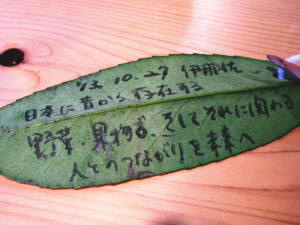 '13 10.27 伊那佐
日本に昔から存在する
野菜、果物、そしてそれに関わる
人とのつながりを未来へ